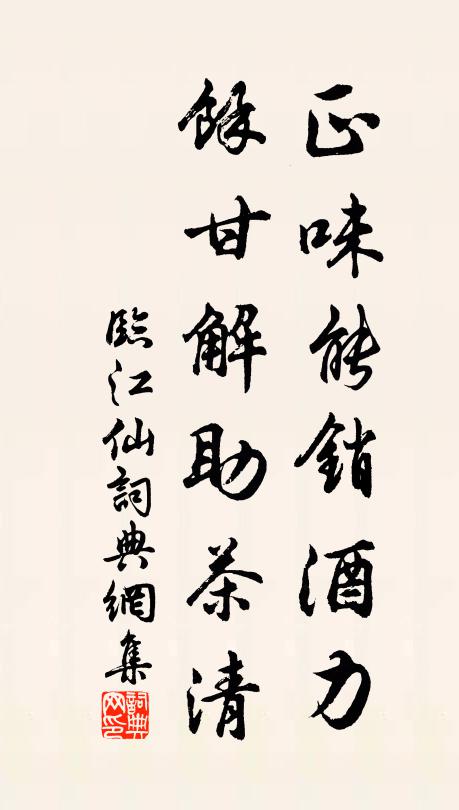 正味能銷酒力
餘甘解助茶清
臨江仙詞典網集
詞典網印